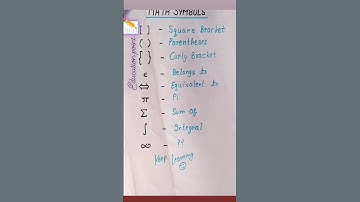 MATH SYMBOLS
Education point
[ ] - Square Bracket
( ) - Parentheses
{ } - Curly Bracket
ε - Belongs to
⇔ - Equivalent to
π - Pi
Σ - Sum Of
∫ - Integral
∞ - ??
Keep learning